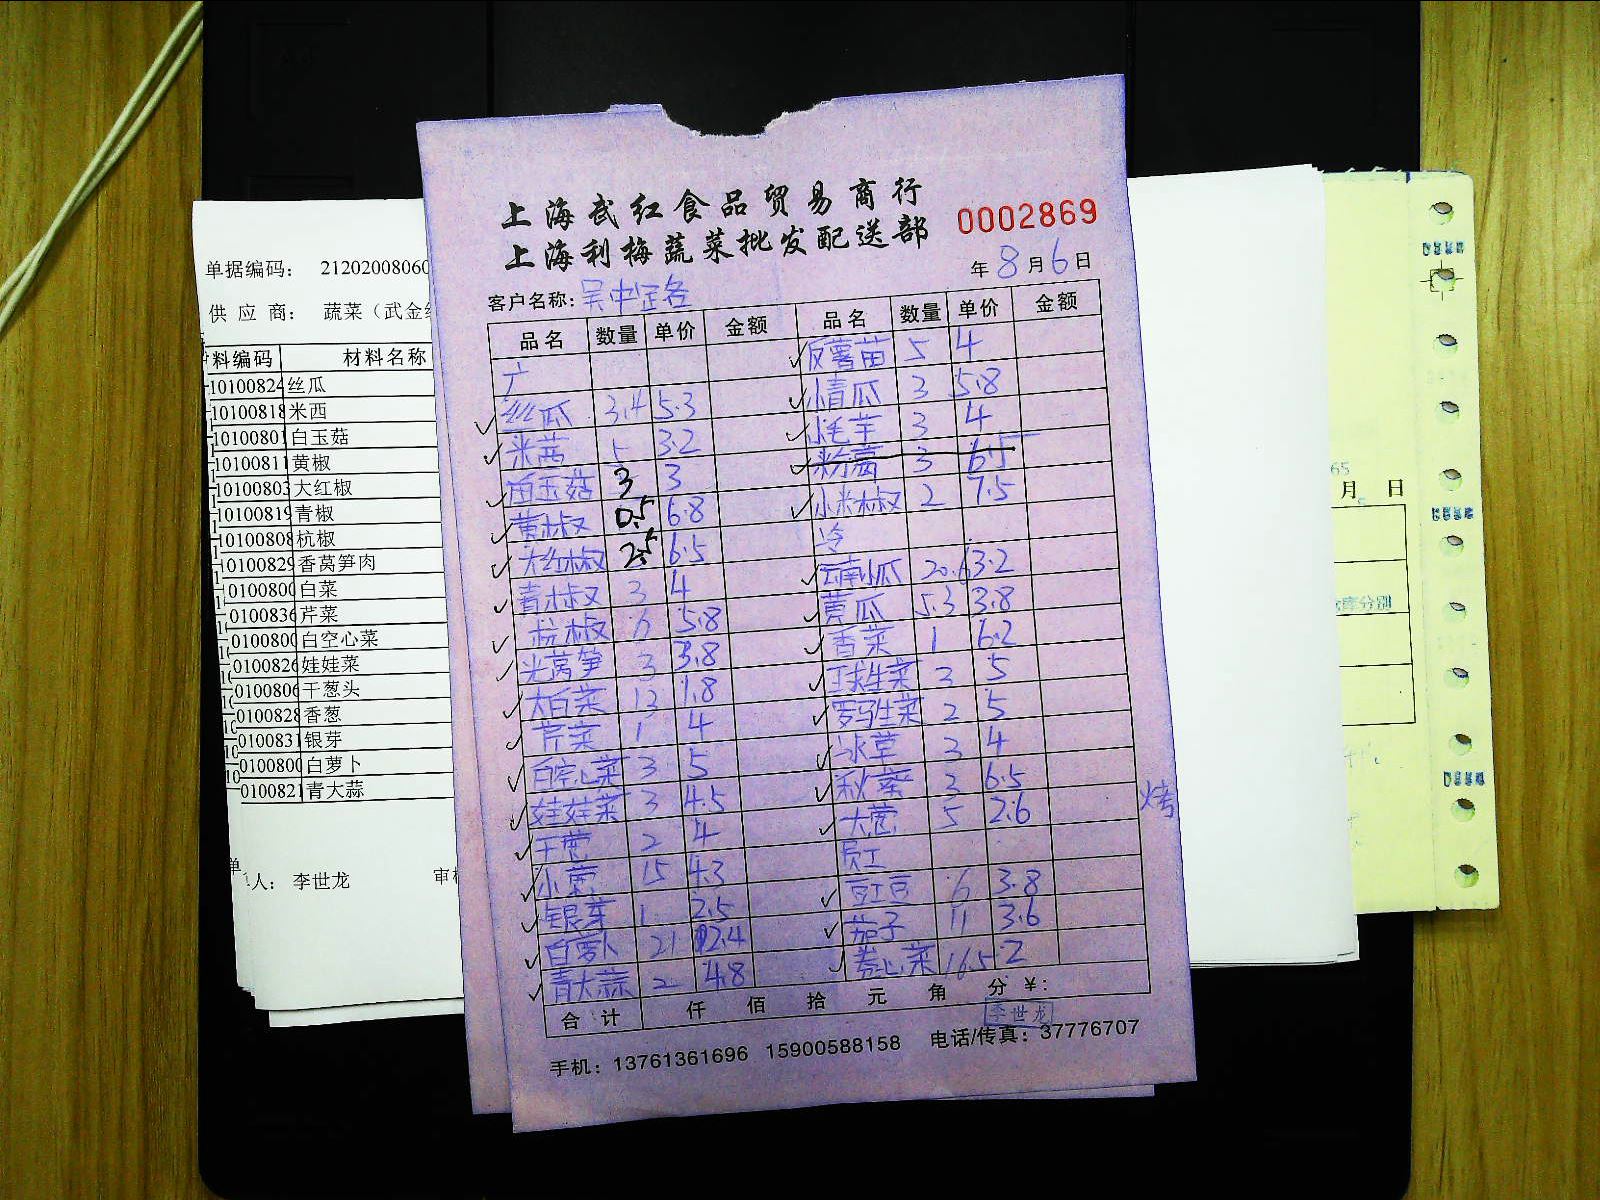 上海武红食品贸易商行
上海利梅蔬菜批发配送部
0002869
年8月6日
客户名称:吴中
品名 数量 单价 金额 品名 数量 单价 金额
广
丝瓜 3.4 5.3
米茜 5 3.2
白玉菇 3 3
黄椒 0.5 6.8
大红椒 2.5 6.5
青椒 3 4
杭椒 6 5.8
光莴笋 3 3.8
大白菜 13 1.8
芹菜 1 4
白空心菜 3 5
娃娃菜 3 4.5
干葱 2 4
小葱 15 4.3
银芽 1 2.5
白萝卜 21 2.4
青大蒜 2 4.8
反薯苗 5 4
小青瓜 3 5.8
小毛芋 3 4
粉葛 3 6.5
小米椒 2 7.5
冷
云南小瓜 20.6 3.2
黄瓜 5.3 3.8
香菜 1 6.2
球生菜 3 5
罗马生菜 2 5
冰草 3 4
秋葵 3 6.5
大葱 5 2.6
烤
员工
豇豆 6 3.8
茄子 11 3.6
卷心菜 16.5 2
合计 仟 佰 拾 元 角 分 ¥:
李世龙
手机: 13761361696 15900588158 电话/传真: 37776707
单据编码: 21202008060
供应商: 蔬菜（武金
料编码 材料名称
10100824 丝瓜
10100818 米西
10100801 白玉菇
10100811 黄椒
10100803 大红椒
10100819 青椒
10100808 杭椒
10100829 香莴笋肉
0100800 白菜
0100836 芹菜
0100800 白空心菜
0100826 娃娃菜
0100806 干葱头
0100828 香葱
0100831 银芽
0100800 白萝卜
0100821 青大蒜
单人: 李世龙 审
65
月 日
库分别